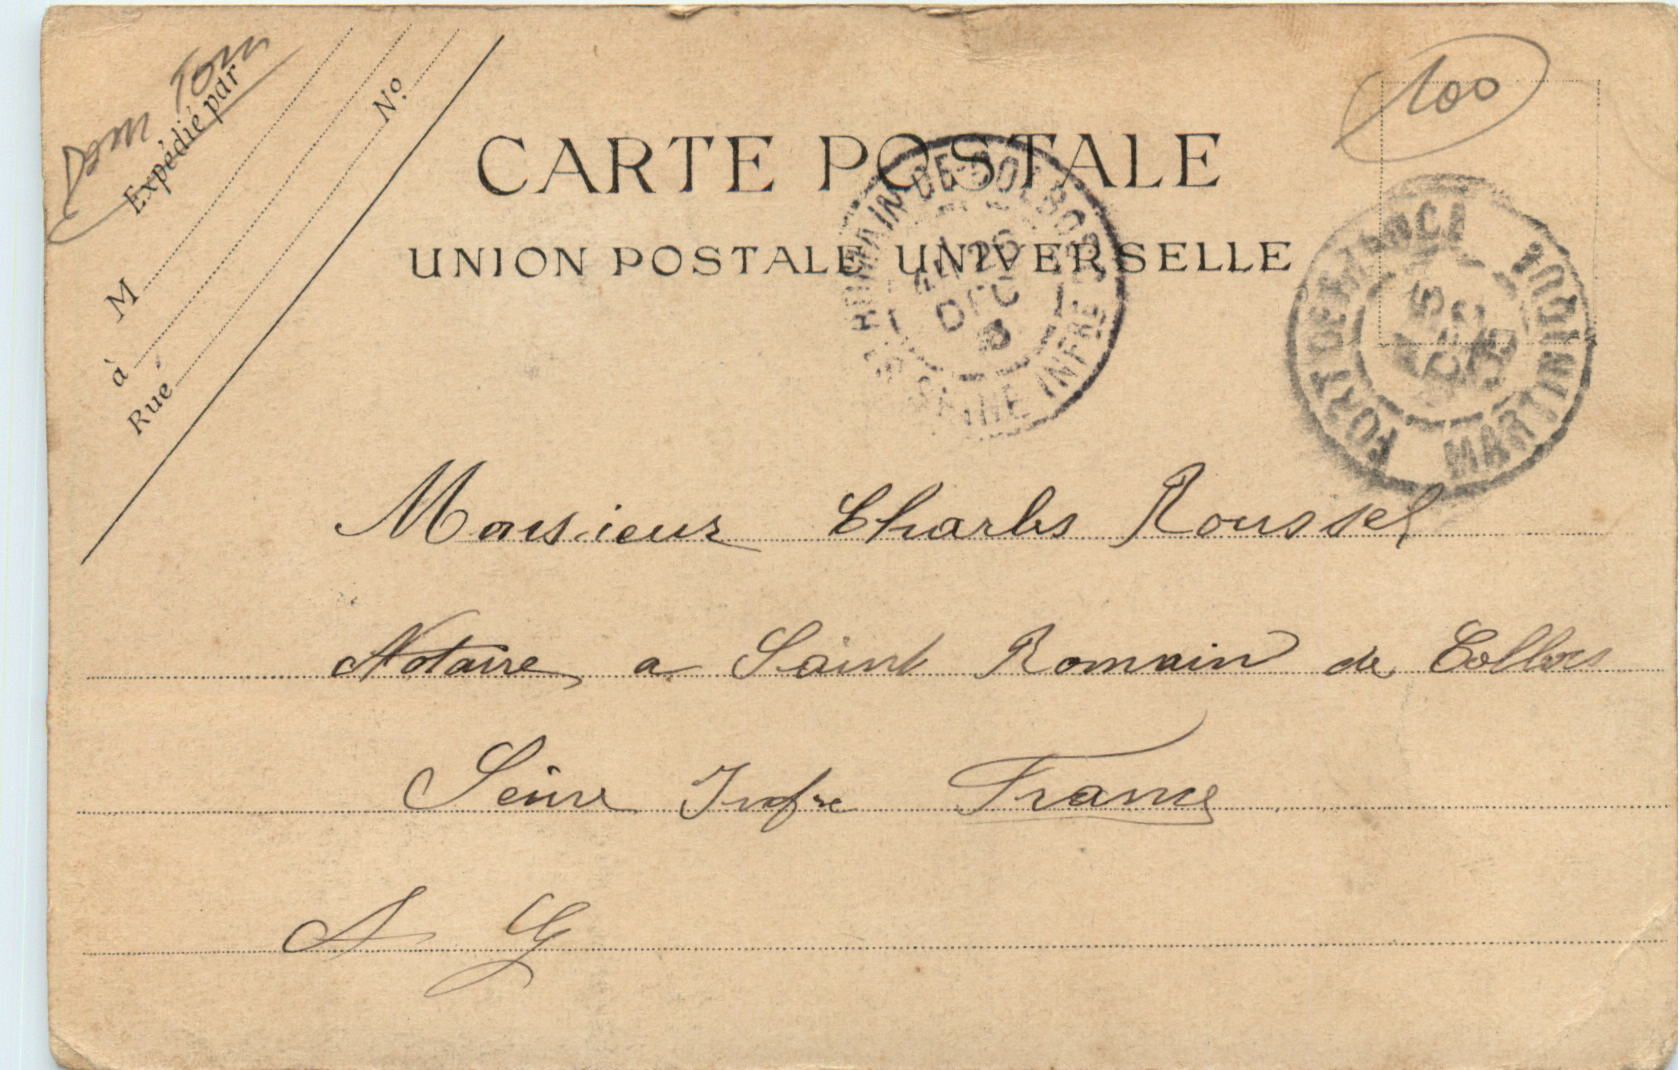 Dom Tom
Expédié par
M
Nº
à
Rue
100
CARTE POSTALE
UNION POSTALE UNIVERSELLE
ROMAIN-DE-COLBOSC
26
DEC
SEINE INFRE
FORT DE FRANCE
DEC
MARTINIQUE
Monsieur Charles Roussel
Notaire a Saint Romain de Colbosc
Seine Infre France
A G